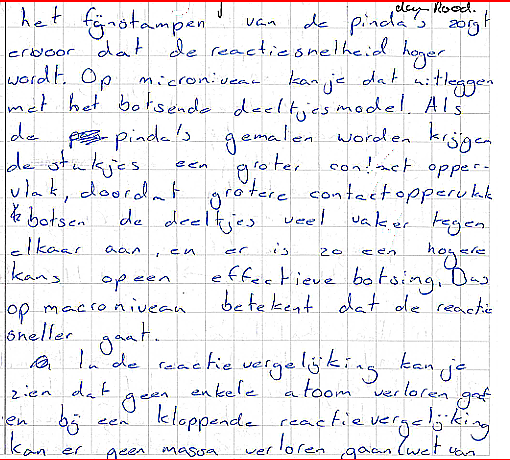 den Rood.
het fijnstampen van de pinda's zorgt
ervoor dat de reactiesnelheid hoger
wordt. Op microniveau kan je dat uitleggen
met het botsende deeltjesmodel. Als
de pinda's gemalen worden krijgen
de stukjes een groter contact opper-
vlak, doordat grotere contactoppervlak
botsen de deeltjes veel vaker tegen
elkaar aan, en er is zo een hogere
kans op een effectieve botsing. Dus
op macroniveau betekent dat de reactie
sneller gaat.
In de reactievergelijking kan je
zien dat geen enkele atoom verloren gaat
en bij een kloppende reactievergelijking
kan er geen massa verloren gaan (wet van